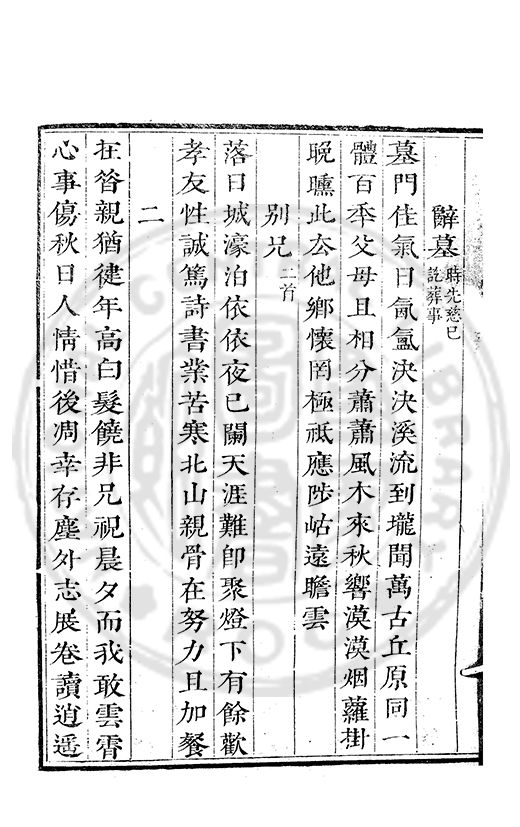 辭墓時先慈已
託葬事
墓門佳氣日氤氳決決溪流到壠聞萬古丘原同一
體百年父母且相分蕭蕭風木來秋響漠漠烟蘿掛
晚曛此去他鄉懷罔極祇應陟岵遠瞻雲
別兄二首
落日城濠泊依依夜已闌天涯難卽聚燈下有餘歡
孝友性誠篤詩書業苦寒北山親骨在努力且加餐
二
在昝親猶健年高白髮饒非兄祝晨夕而我敢雲霄
心事傷秋日人情惜後凋幸存塵外志展卷讀逍遥